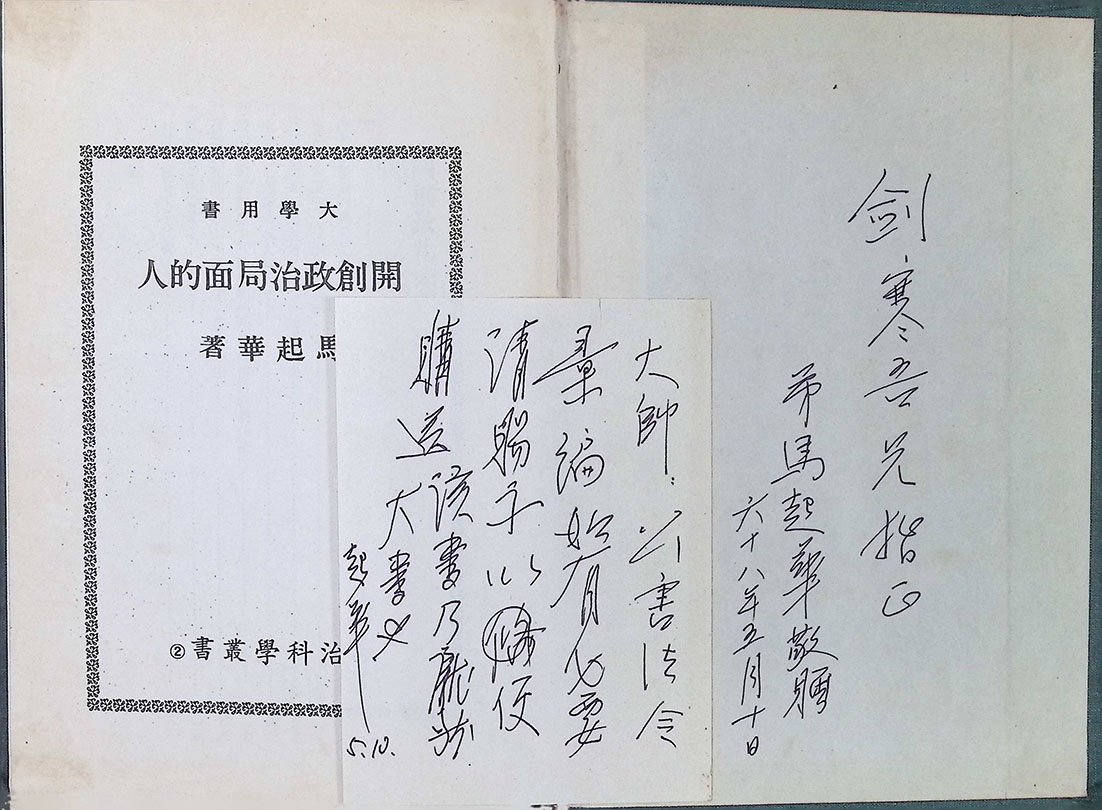 剑寒吾兄指正
弟馬起華敬贈
六十八年五月十日
大帥：公害法令
彙編如有必要
請賜示以便
購送 該書乃龐然
大書也
起華
5.10.
大學用書
開創政治局面的人
馬起華著
治科學叢書②